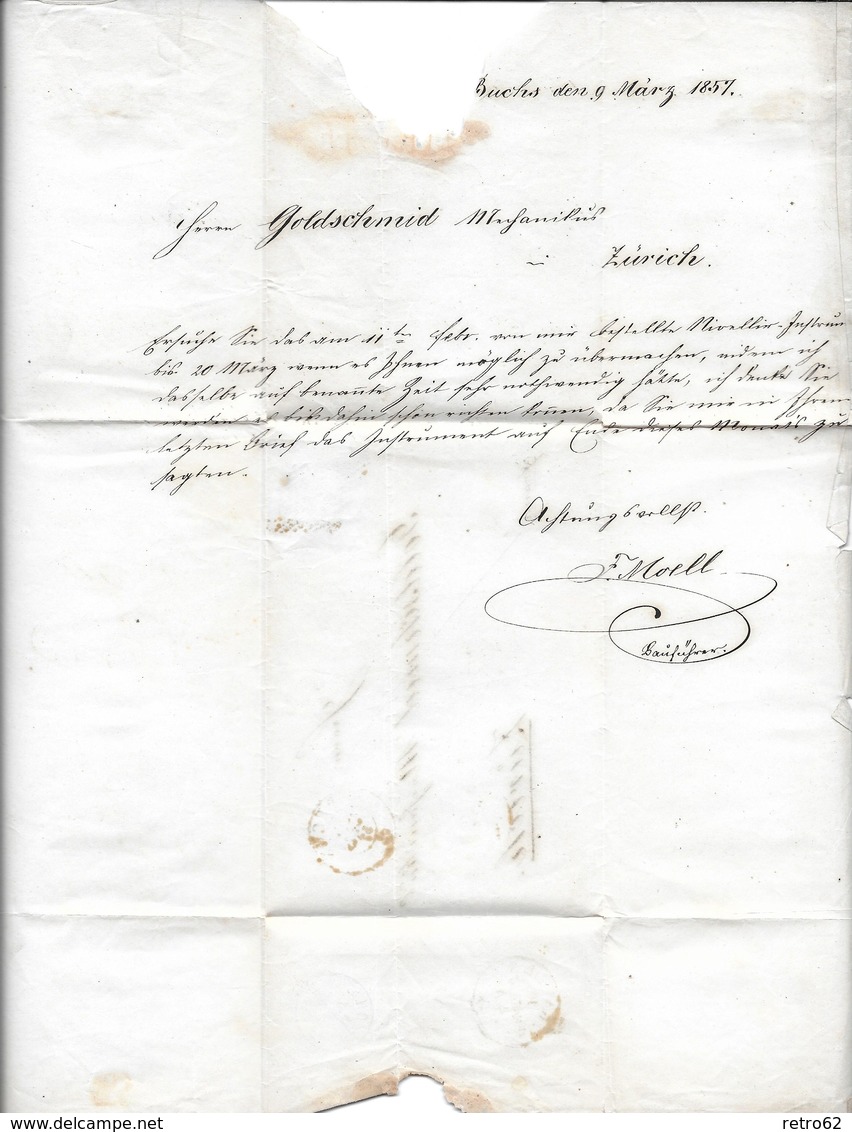 Buchs den 9 März 1857.
Herrn Goldschmid Mechanikus
in Zürich.
Ersuche Sie das am 11ten Febr. von mir bestellte Nivellir-Instrum
bis 20 März wenn es Ihnen möglich zu übermachen, indem ich
dasselbe auf benannte Zeit sehr nothwendig hätte, ich denke Sie
werden es bis dahin schon rüsten können, da Sie mir in Ihrem
letzten Brief das Instrument auf Ende dieses Monats zu
sagten.
Achtungsvollst.
F. Moell
Bauführer.
retro62